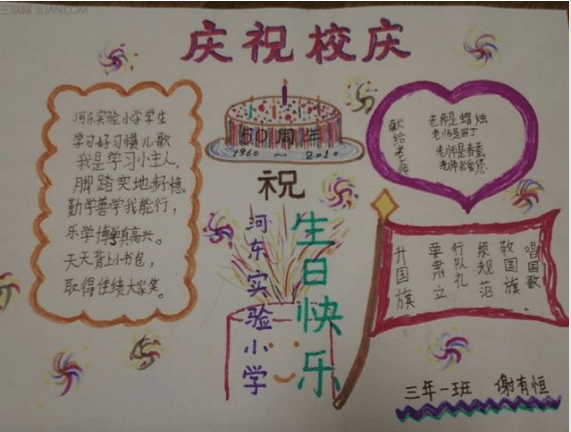 三联网 3LIAN.COM
庆祝校庆
河东实验小学学生
学习好习惯儿歌
我是学习小主人,
脚踏实地好稳。
勤学善学我能行,
乐学博学真高兴。
天天背上小书包,
取得佳绩大家笑。
50周年
1960 ~ 2010
祝
河东实验小学
生日快乐
献给老师
老师是蜡烛
老师是园丁
老师是春蚕
升国旗
要肃立
行队礼
须规范
敬国旗
唱国歌
三年一班 谢有恒